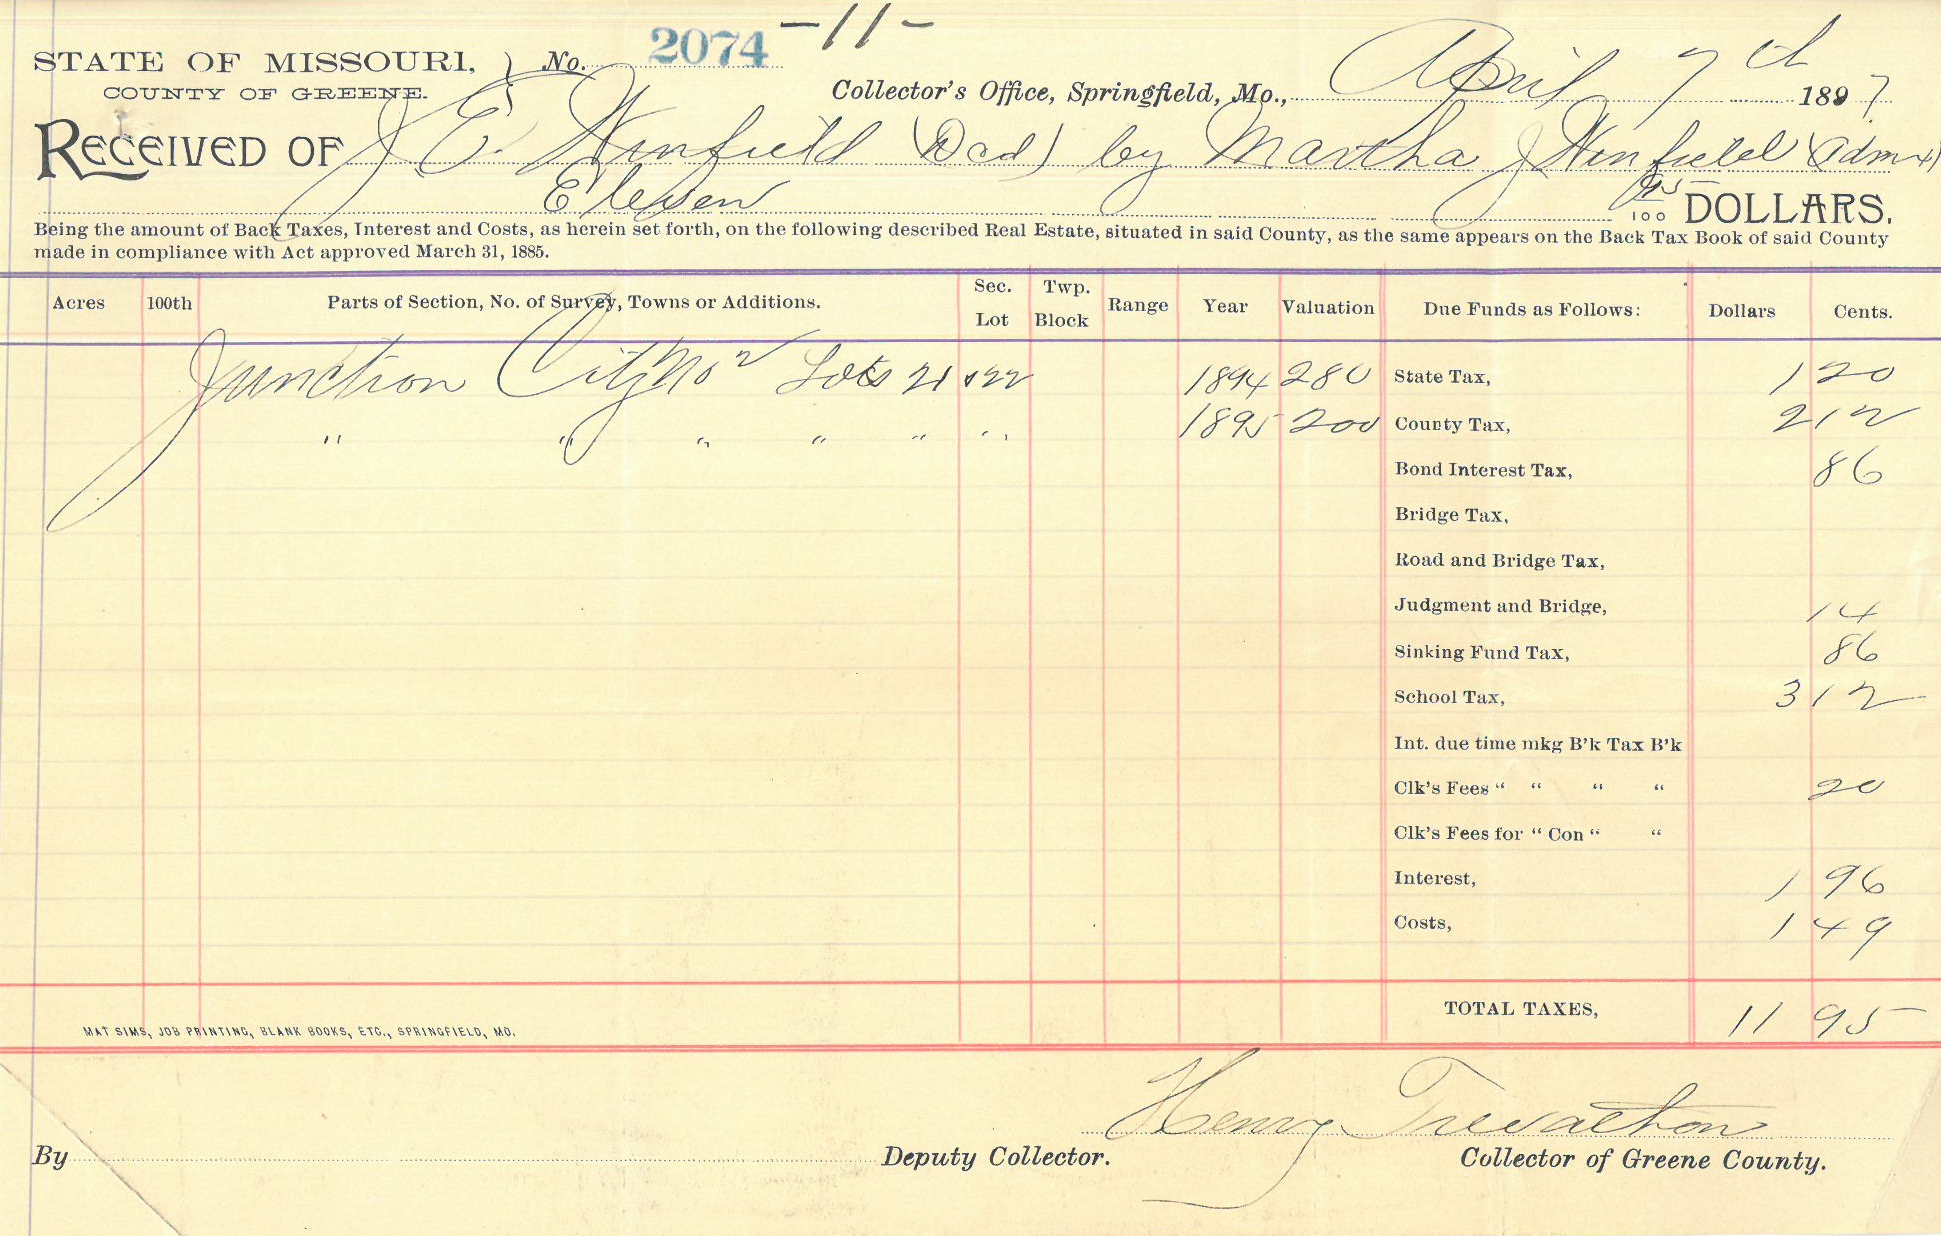 -11-
STATE OF MISSOURI, } No. 2074
COUNTY OF GREENE.
Collector's Office, Springfield, Mo., April 7th 1897
RECEIVED OF J E. Winfield (Dcd) by Martha J Winfield (Admx)
Eleven 95/100 DOLLARS.
Being the amount of Back Taxes, Interest and Costs, as herein set forth, on the following described Real Estate, situated in said County, as the same appears on the Back Tax Book of said County
made in compliance with Act approved March 31, 1885.
Acres 100th Parts of Section, No. of Survey, Towns or Additions. Sec. Lot Twp. Block Range Year Valuation Due Funds as Follows: Dollars Cents.
Junction City No 2 Lots 21 & 22 1894 280 State Tax, 1 20
" " " " " " 1895 200 County Tax, 2 12
Bond Interest Tax, 86
Bridge Tax,
Road and Bridge Tax,
Judgment and Bridge, 14
Sinking Fund Tax, 86
School Tax, 3 12
Int. due time mkg B'k Tax B'k
Clk's Fees " " " " 20
Clk's Fees for " Con " "
Interest, 1 96
Costs, 1 49
TOTAL TAXES, 11 95
MAT SIMS, JOB PRINTING, BLANK BOOKS, ETC., SPRINGFIELD, MO.
Henry
By Deputy Collector. Collector of Greene County.